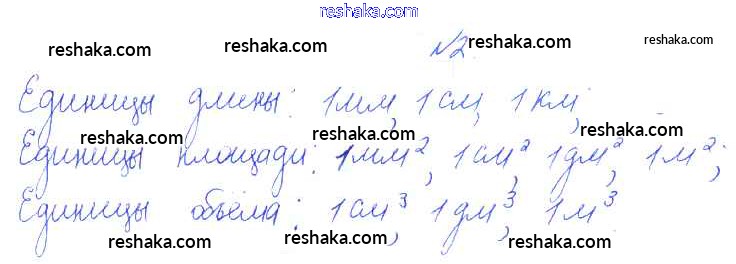 reshaka.com
№2.
reshaka.com reshaka.com reshaka.com
Единицы длины: 1 мм, 1 см, 1 км;
reshaka.com reshaka.com reshaka.com
Единицы площади: 1 мм², 1 см², 1 дм², 1 м²;
Единицы объёма: 1 см³, 1 дм³, 1 м³
reshaka.com reshaka.com reshaka.com